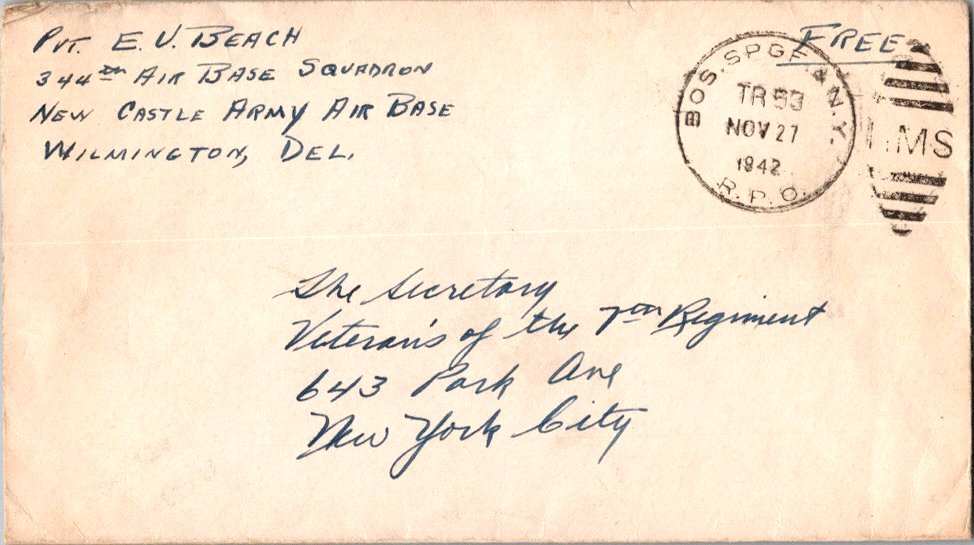 Pvt. E. V. Beach
344th Air Base Squadron
New Castle Army Air Base
Wilmington, Del.
Free
BOS. SPGF. & N.Y.
TR 53
NOV 27
1942
R.P.O.
MS
The Secretary
Veteran's of the 7th Regiment
643 Park Ave
New York City